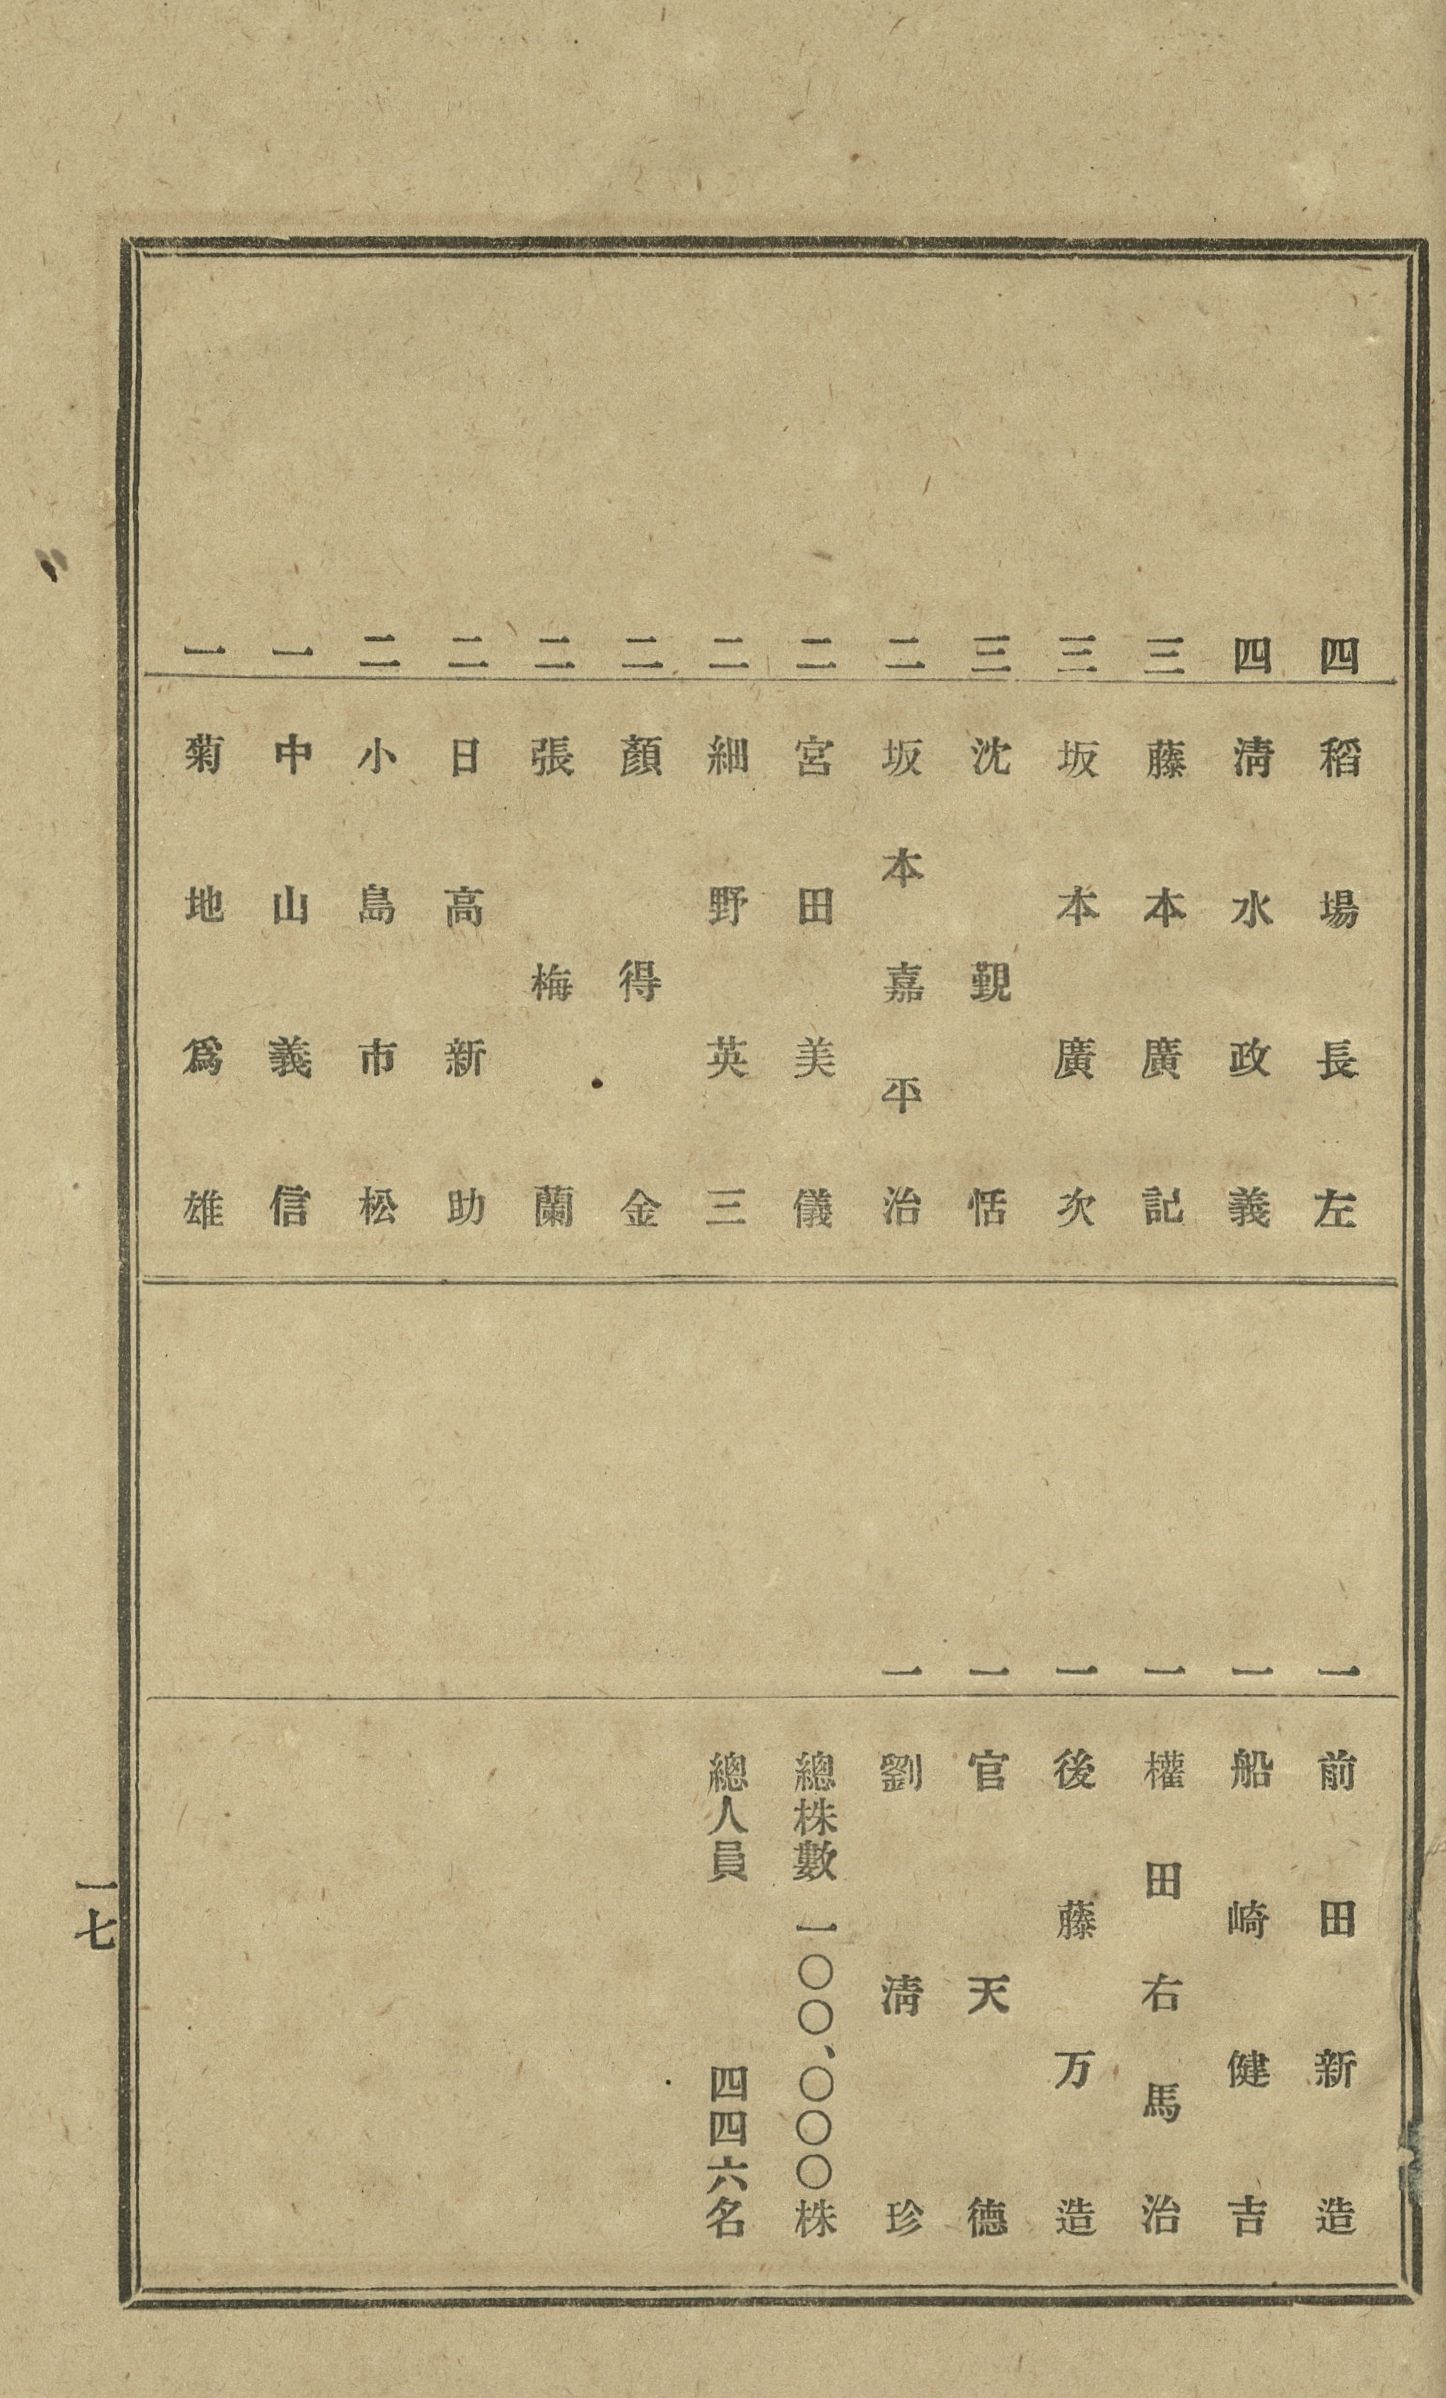 四 稻場長左
四 淸水政義
三 藤本廣記
三 坂本廣次
三 沈覲恬
二 坂本嘉平治
二 宮田美儀
二 細野英三
二 顏得金
二 張梅蘭
二 日高新助
二 小島市松
一 中山義信
一 菊地爲雄
一 前田新造
一 船崎健吉
一 權田右馬治
一 後藤万造
一 官天德
一 劉淸珍
總株數 一〇〇、〇〇〇株
總人員 四四六名
一七